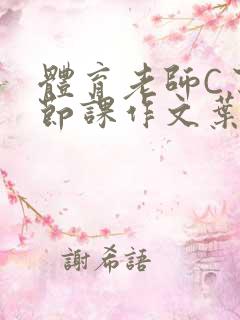 體育老師C
節課作文葉
謝希語